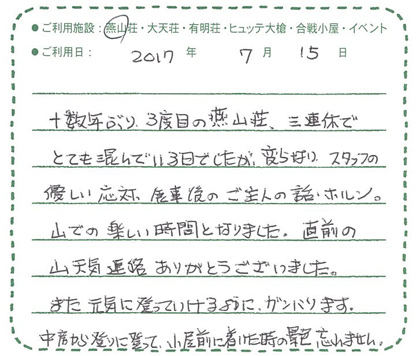 ●ご利用施設：燕山荘・大天荘・有明荘・ヒュッテ大槍・合戦小屋・イベント
●ご利用日： 2017 年 7月 15日
十数年ぶり、3度目の燕山荘、三連休で
とても混んでいる日でしたが、変らない スタッフの
優しい応対、食事後のご主人の話・ホルン。
山での楽しい時間となりました。直前の
山天気連絡ありがとうございました。
また元気に登っていけるように、ガンバリます。
中房から登りに登って、小屋前に着いた時の景色忘れません。